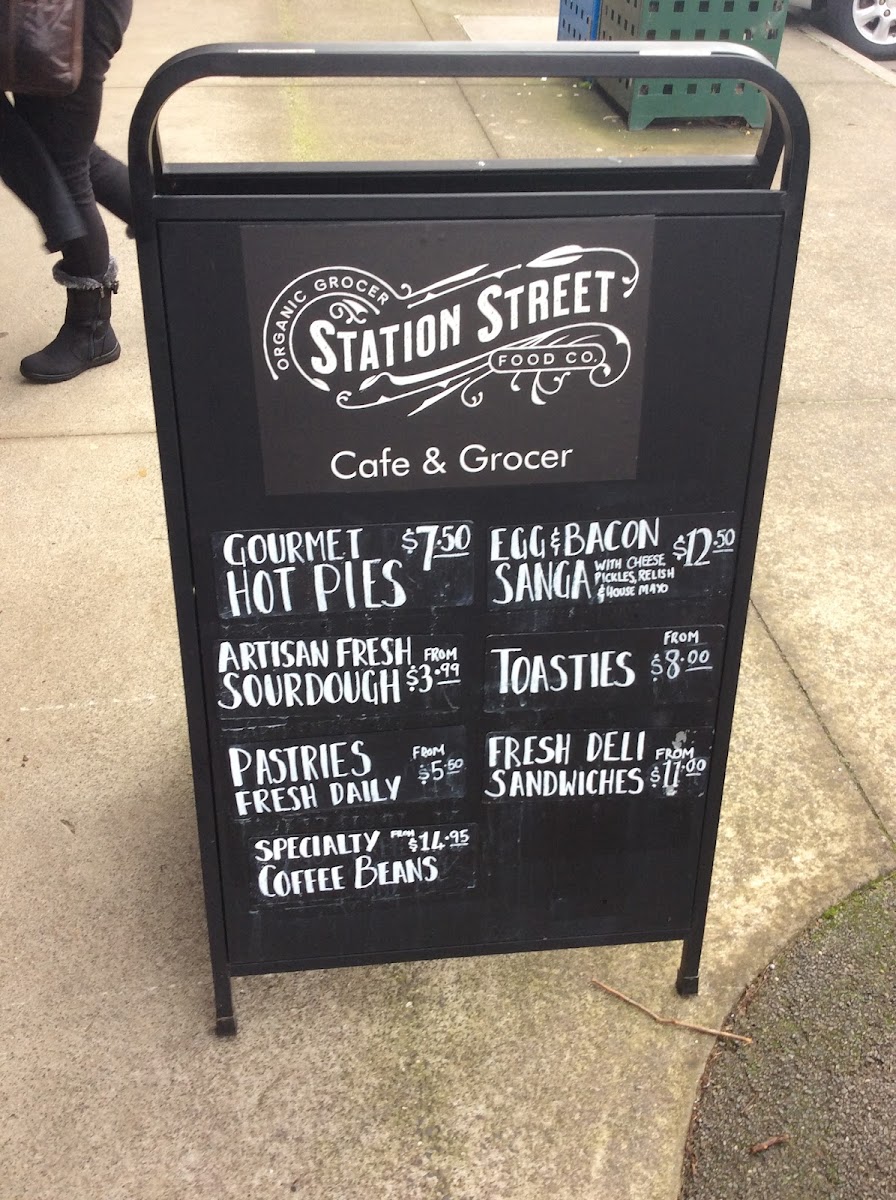 ORGANIC GROCER
STATION STREET
FOOD CO.
Cafe & Grocer
GOURMET $7.50
HOT PIES
EGG & BACON $12.50
SANGA WITH CHEESE,
PICKLES, RELISH
& HOUSE MAYO
ARTISAN FRESH FROM
SOURDOUGH $3.99
FROM
TOASTIES $8.00
PASTRIES FROM
FRESH DAILY $5.50
FRESH DELI FROM
SANDWICHES $11.00
SPECIALTY FROM $14.95
COFFEE BEANS